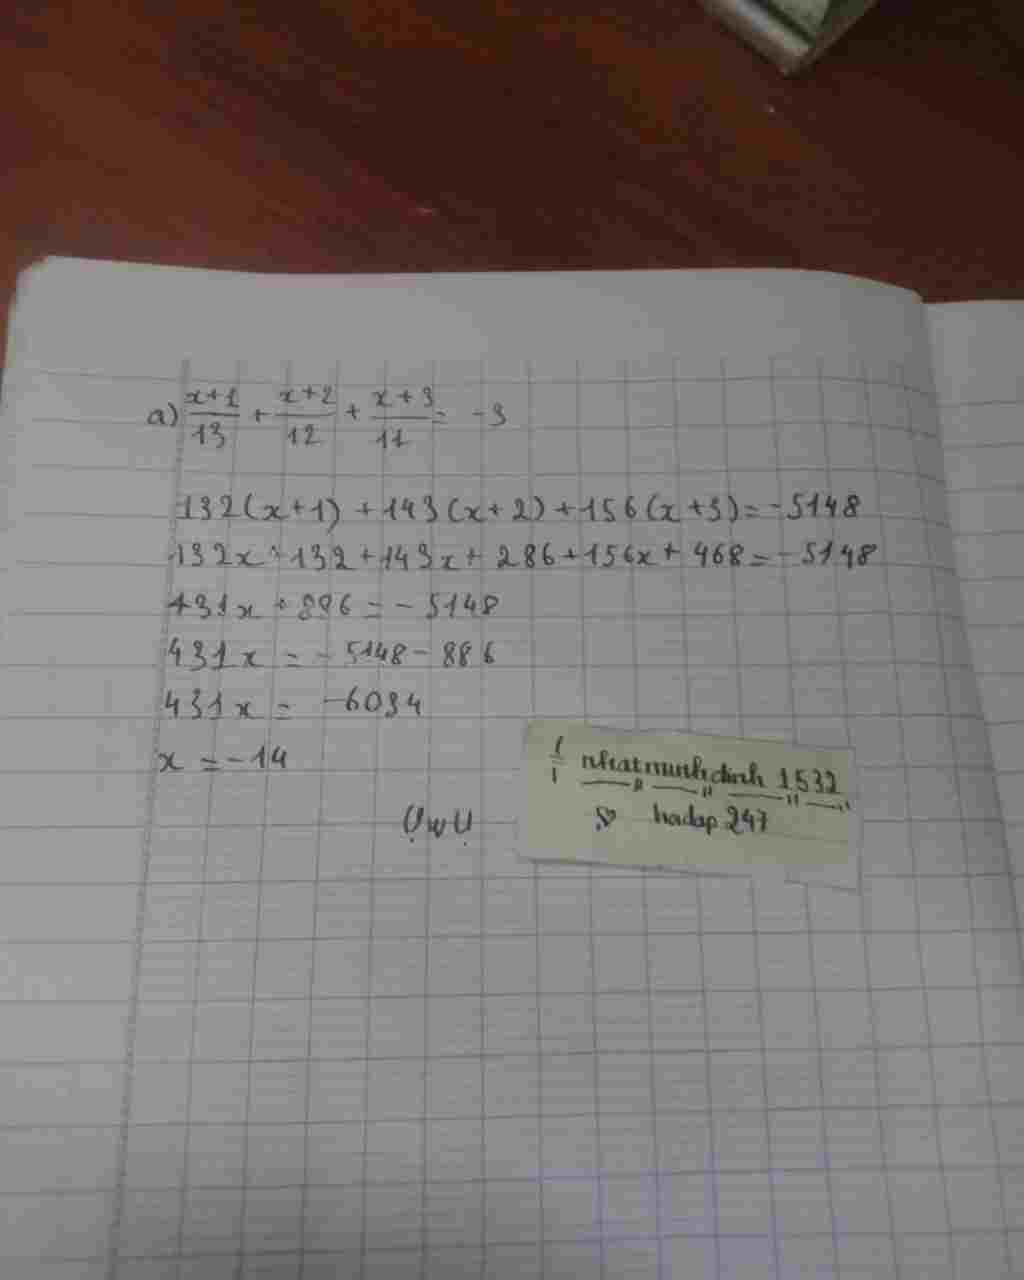 a) x+1/13 + x+2/12 + x+3/11 = -3
132(x+1)+143(x+2)+156(x+3)=-5148
132x+132+143x+286+156x+468=-5148
431x+886=-5148
431x=-5148-886
431x=-6034
x=-14
UwU
nhatminhdinh 1532
hadap 247